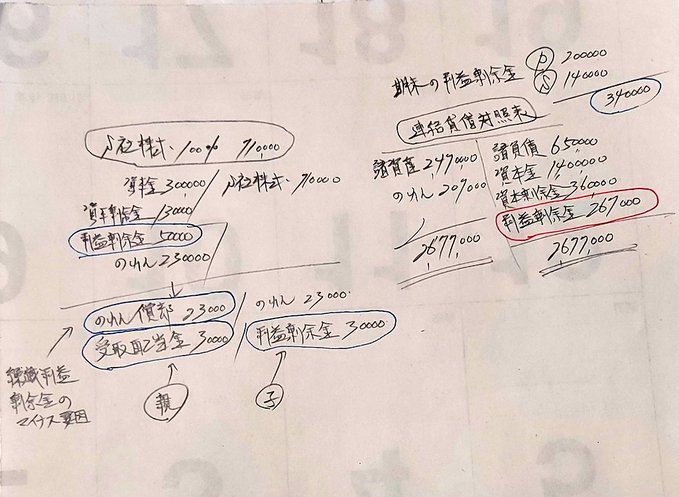 S社株式 100% 710,000
資本金 300000 / S社株式 710000
資本剰余金 130000
利益剰余金 50000
のれん 230000
のれん償却 23000 / のれん 23000
受取配当金 30000 / 利益剰余金 30000
親
子
利益
剰余金の
マイナス要因
期末の利益剰余金
P 200000
S 140000
340000
連結貸借対照表
諸資産 2,47,000
諸負債 650,000
のれん 207,000
資本金 1400,000
資本剰余金 360,000
利益剰余金 267,000
2,677,000
2,677,000